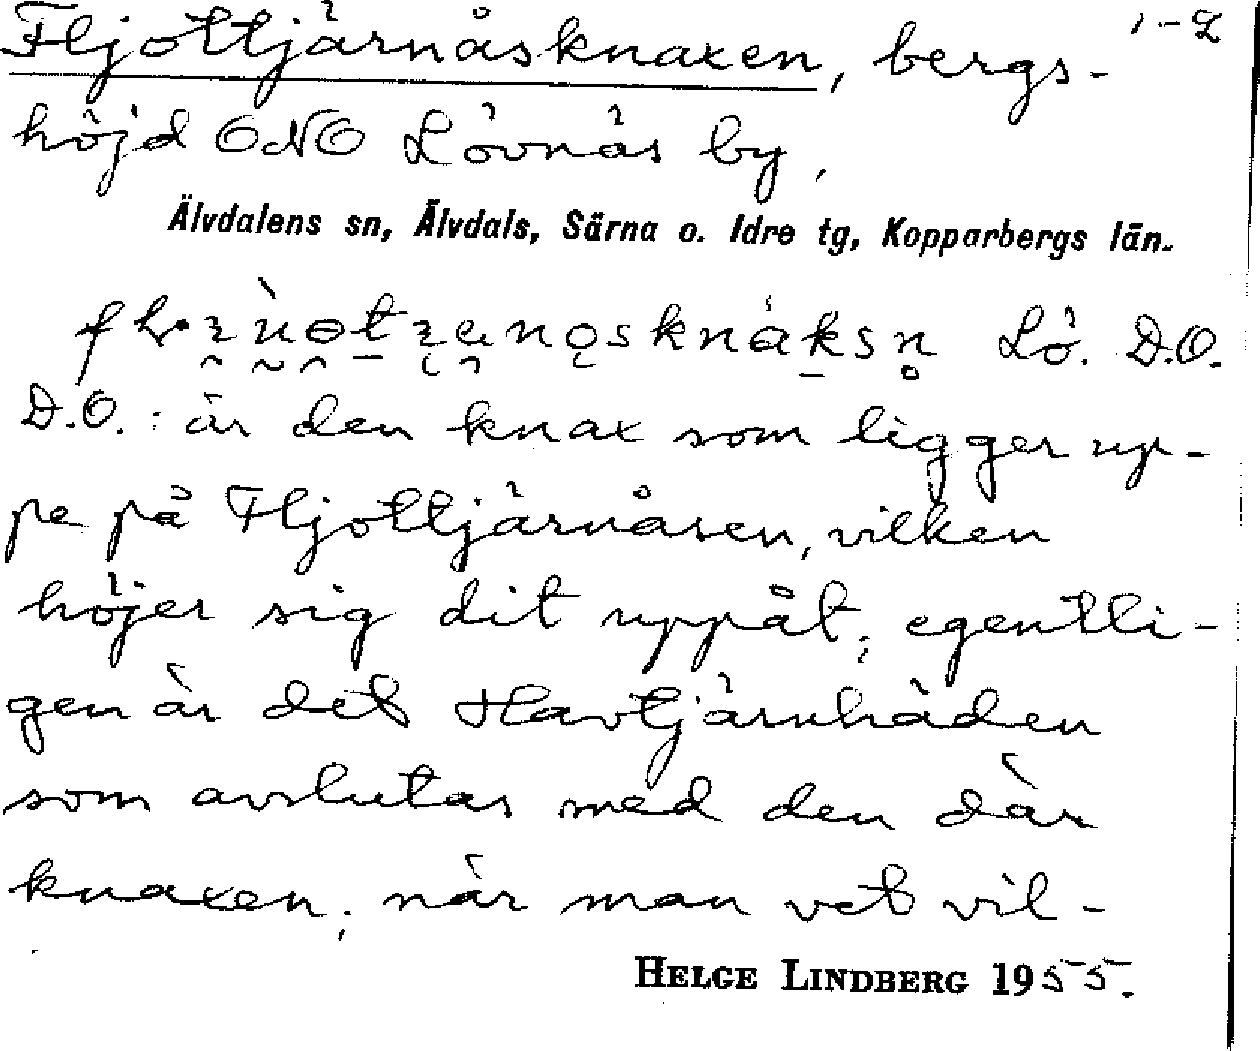 Fljottjärnåsknaxen, bergs- 1-2
höjd ONO Lövnäs by,
Älvdalens sn, Älvdals, Särna o. Idre tg, Kopparbergs län.
Lö. D.O.
D.O.: är den knax som ligger up-
pe på Fljottjärnåsen, vilken
höjer sig dit uppåt; egentli-
gen är det Havtjärnhåden
som avslutas med den där
knaxen; när man vet vil-
HELGE LINDBERG 1955.